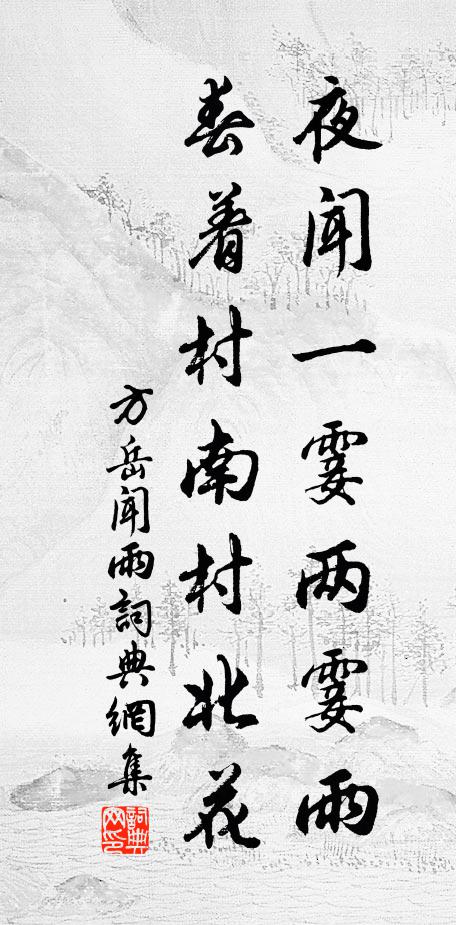 夜闻一霎两霎雨
春着村南村北花
方岳闻雨詞典網集
詞典
网印